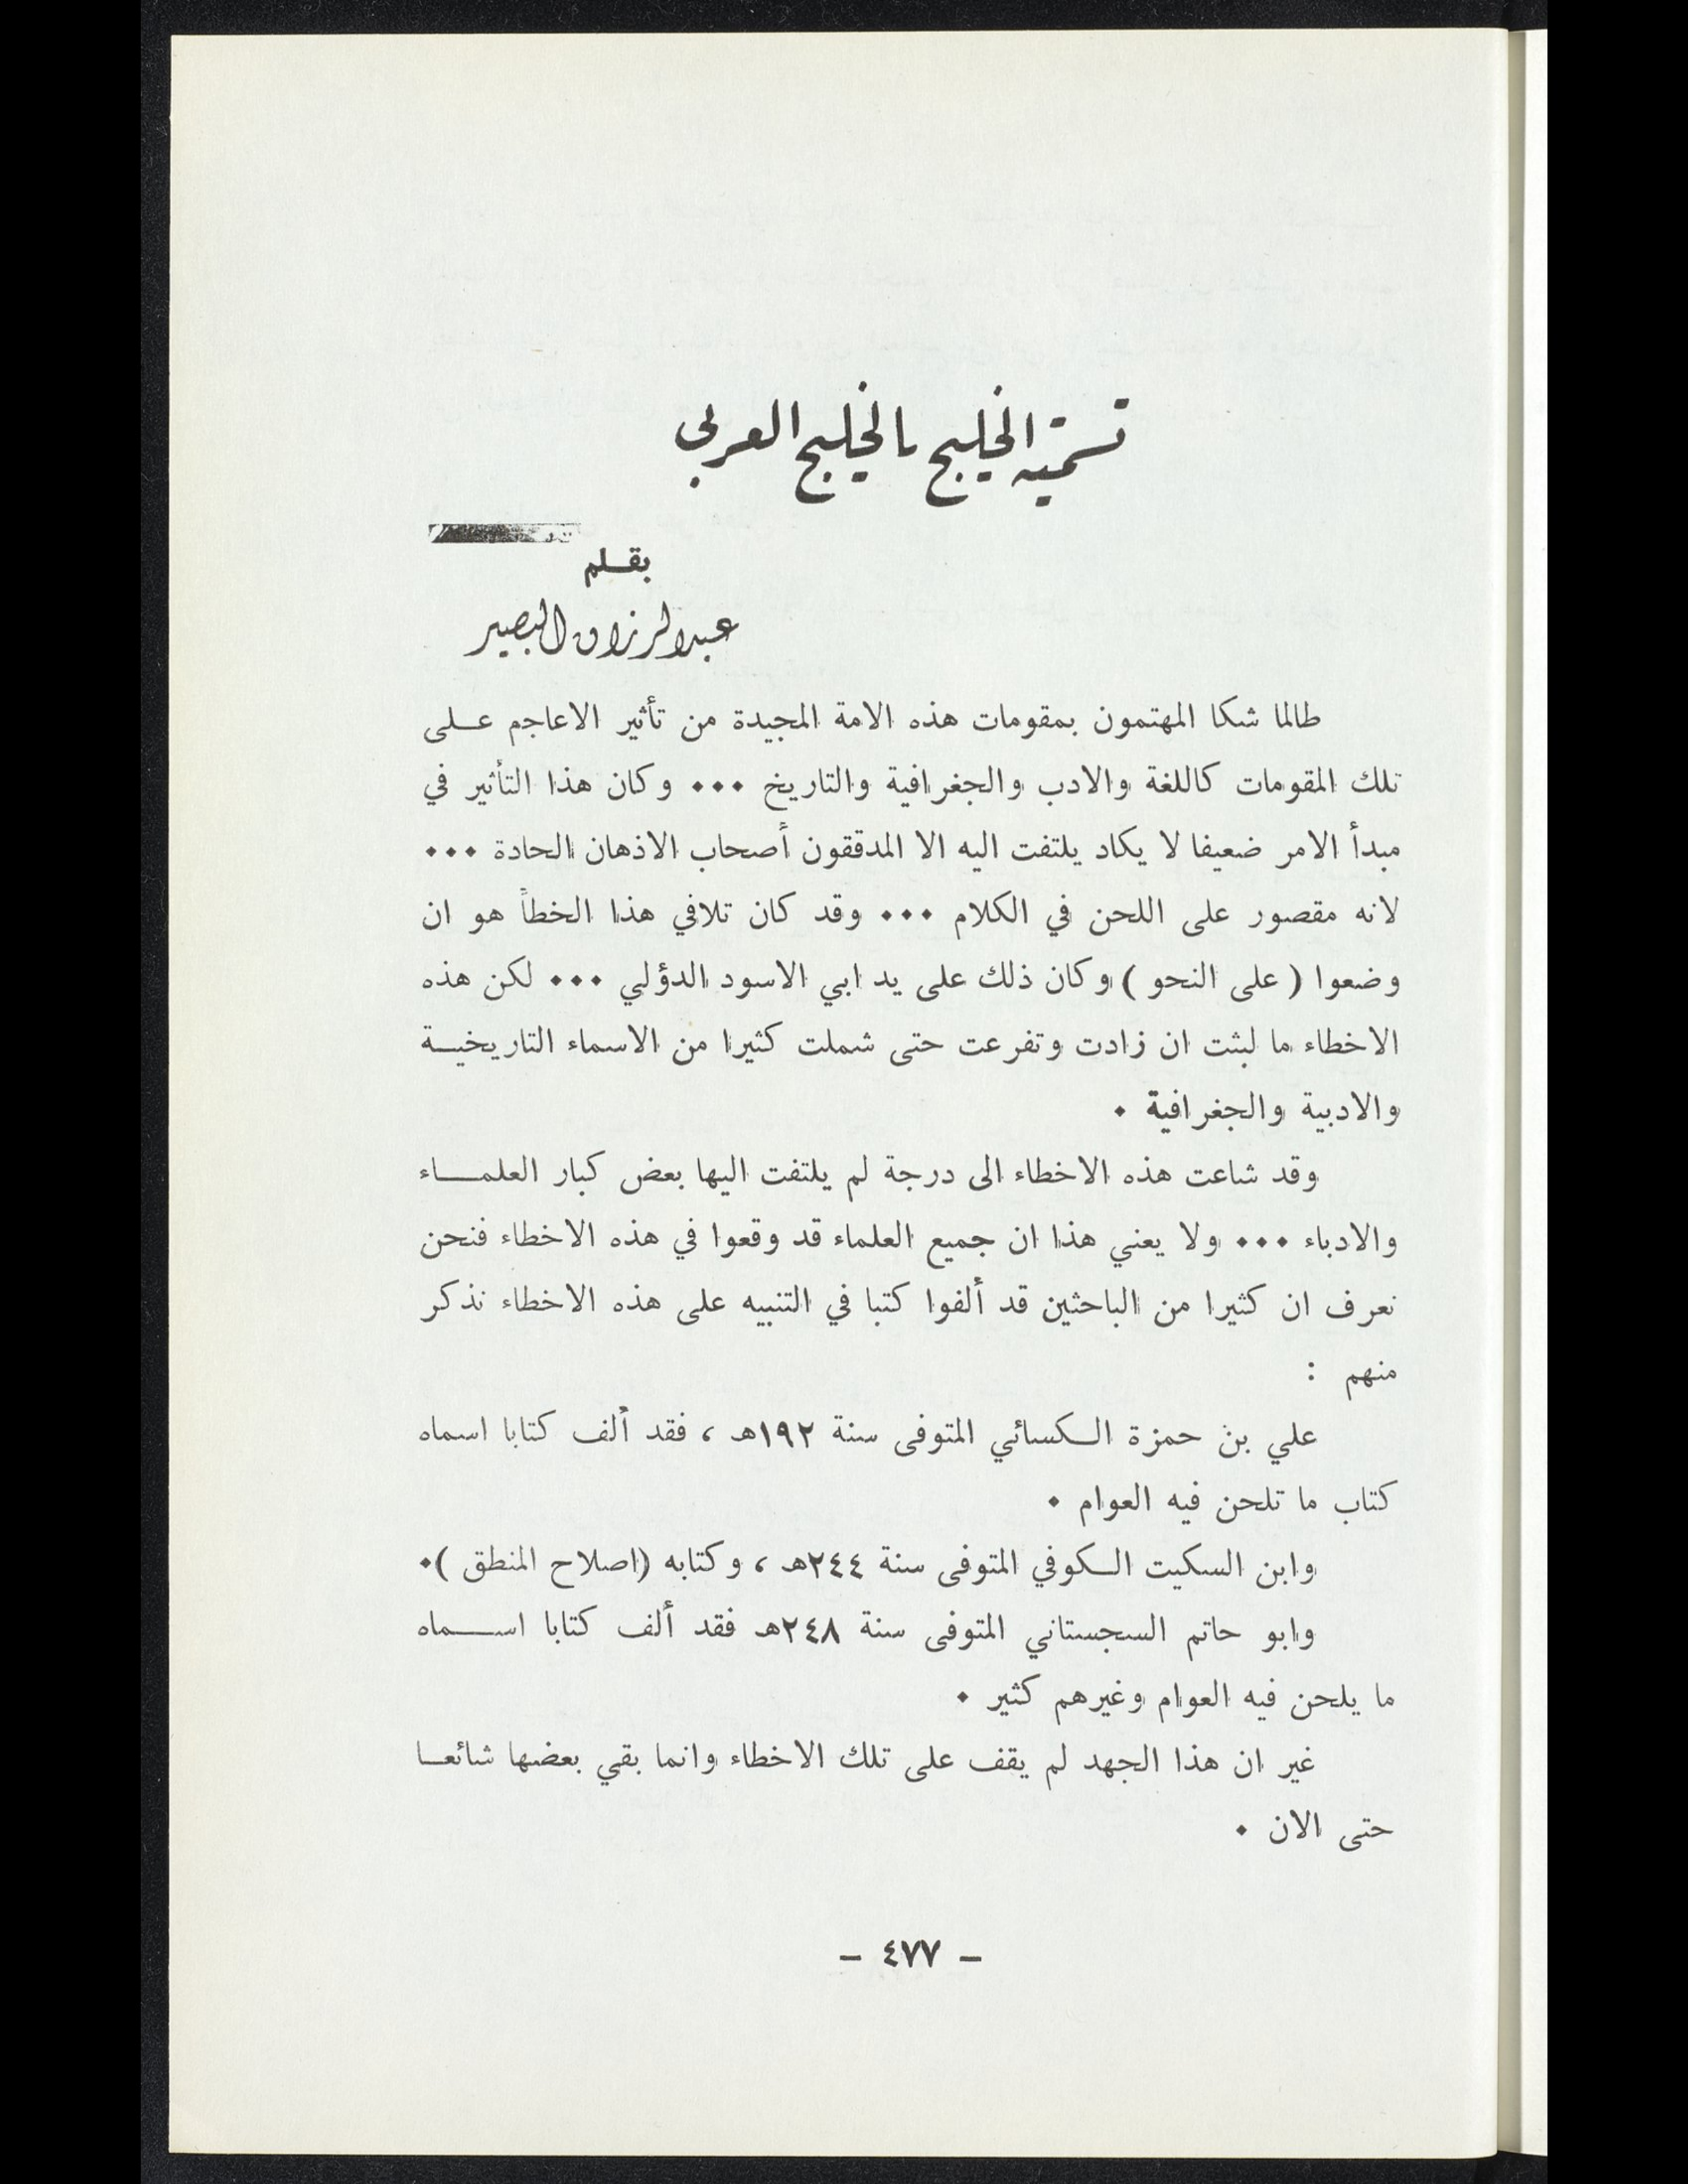 تسمية الخليج بالخليج العربي
بقلم
عبدالرزاق البصير
طالما شكا المهتمون بمقومات هذه الامة المجيدة من تأثير الاعاجم على
تلك المقومات كاللغة والادب والجغرافية والتاريخ ... وكان هذا التأثير في
مبدأ الامر ضعيفا لا يكاد يلتفت اليه الا المدققون أصحاب الاذهان الحادة ...
لانه مقصور على اللحن في الكلام ... وقد كان تلافي هذا الخطأ هو ان
وضعوا ( على النحو ) وكان ذلك على يد ابي الاسود الدؤلي ... لكن هذه
الاخطاء ما لبثت ان زادت وتفرعت حتى شملت كثيرا من الاسماء التاريخية
والادبية والجغرافية .
وقد شاعت هذه الاخطاء الى درجة لم يلتفت اليها بعض كبار العلماء
والادباء ... ولا يعني هذا ان جميع العلماء قد وقعوا في هذه الاخطاء فنحن
نعرف ان كثيرا من الباحثين قد ألفوا كتبا في التنبيه على هذه الاخطاء نذكر
منهم :
علي بن حمزة الكسائي المتوفى سنة ١٩٢هـ ، فقد ألف كتابا اسماه
كتاب ما تلحن فيه العوام .
وابن السكيت الكوفي المتوفى سنة ٢٤٤هـ ، وكتابه (اصلاح المنطق ).
وابو حاتم السجستاني المتوفى سنة ٢٤٨هـ فقد ألف كتابا اسماه
ما يلحن فيه العوام وغيرهم كثير .
غير ان هذا الجهد لم يقف على تلك الاخطاء وانما بقي بعضها شائعا
حتى الان .
- ٤٧٧ -